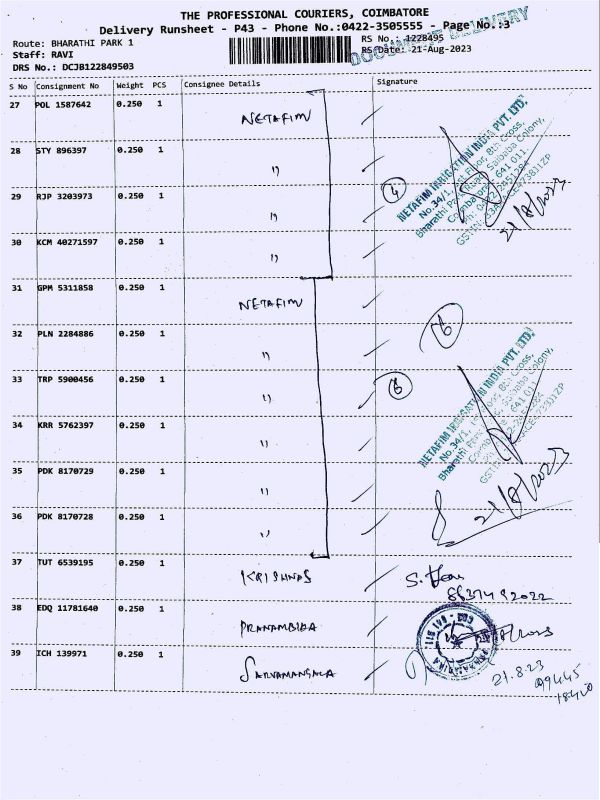 THE PROFESSIONAL COURIERS, COIMBATORE
Delivery Runsheet - P43 - Phone No.:0422-3505555 - Page No.:3
Route: BHARATHI PARK 1
RS No.: 1228495
Staff: RAVI
RS Date: 21-Aug-2023
DOCUMENT DELIVERY
DRS No.: DCJB122849503
S No Consignment No Weight PCS Consignee Details Signature
27 POL 1587642 0.250 1 NETAFIM
28 STY 896397 0.250 1 "
29 RJP 3203973 0.250 1 "
30 KCM 40271597 0.250 1 "
4
NETAFIM IRRIGATION INDIA PVT. LTD.
No.34/1, Floor, 8th Cross,
Bharathi Park Saibaba Colony,
Coimbatore 641 011.
21/8/2023
31 GPM 5311858 0.250 1 NETAFIM
32 PLN 2284886 0.250 1 "
33 TRP 5900456 0.250 1 "
34 KRR 5762397 0.250 1 "
35 PDK 8170729 0.250 1 "
36 PDK 8170728 0.250 1 "
6
6
NETAFIM IRRIGATION INDIA PVT. LTD.
No.34/1, Floor, 8th Cross,
Bharathi Park Saibaba Colony,
641 011.
21/8/2023
37 TUT 6539195 0.250 1 KRISHNAS
38 EDQ 11781640 0.250 1 PRANAMBIKA
39 ICH 139971 0.250 1 SARVAMANGALA
21.8.23
99445
18420